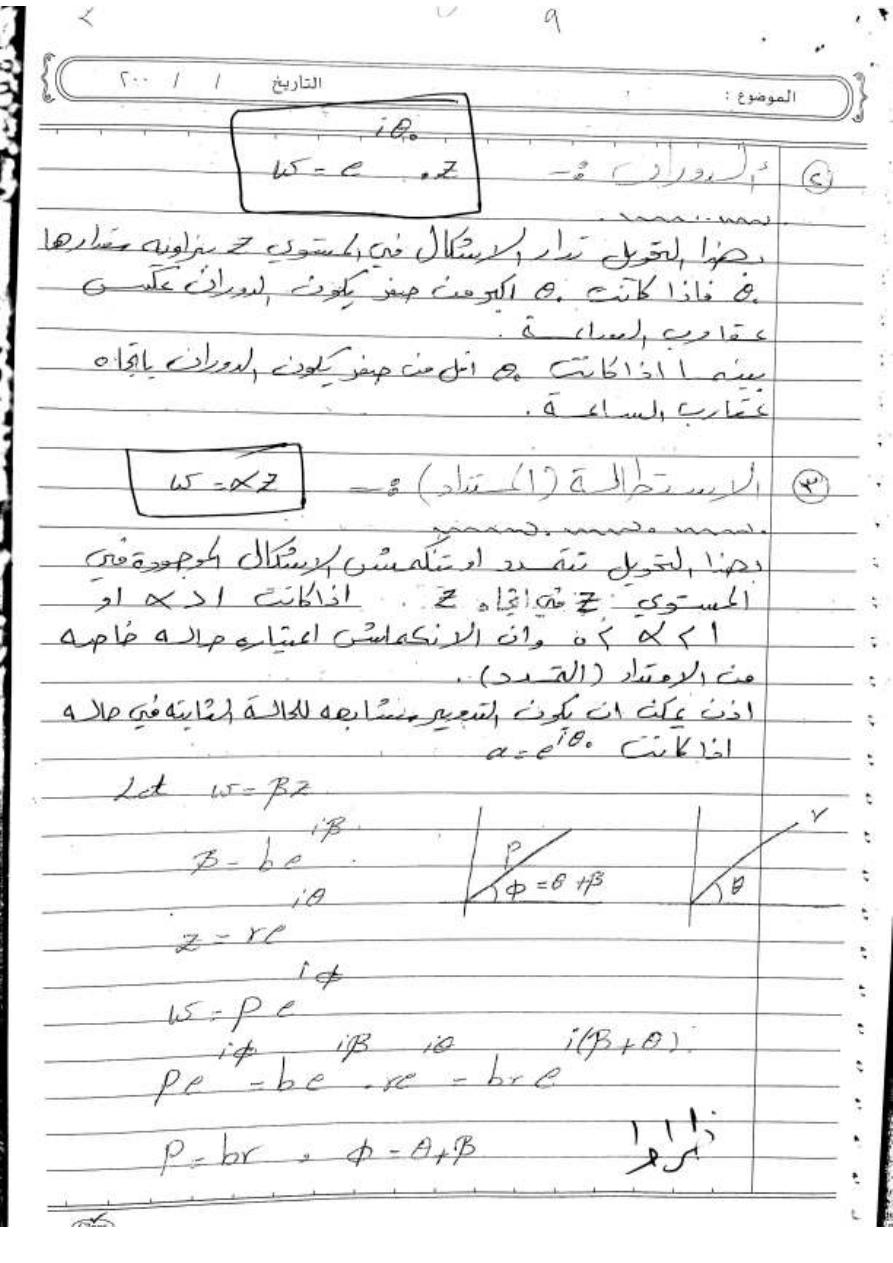 ٩
الموضوع : التاريخ / / ٢٠٠
② الدوران :- w = e^{iθ₀} . z
بهذا التحويل تدار الاشكال في المستوي z بزاويه مقدارها
θ₀ فاذا كانت θ₀ اكبر من صفر يكون الدوران عكس
عقارب الساعة .
بينما اذا كانت θ₀ اقل من صفر يكون الدوران باتجاه
عقارب الساعة .
③ الاستطالة (الامتداد) :- w = αz
بهذا التحويل تتمدد او تنكمش الاشكال الموجودة في
المستوي z في اتجاه z اذا كانت α > 1 او
وان الانكماش اعتباره حاله خاصه
من الامتداد (التمدد) .
اذن يمكن ان يكون التدوير مشابهه للحالة الثانيه في حاله
اذا كانت a = e^{iθ₀}
Let w = βz
β = b e^{iβ}
ρ φ = θ + β
r θ
z = r e^{iθ}
w = ρ e^{iφ}
ρ e^{iφ} = b e^{iβ} . r e^{iθ} = b r e^{i(β+θ)}
ρ = br , φ = θ + β